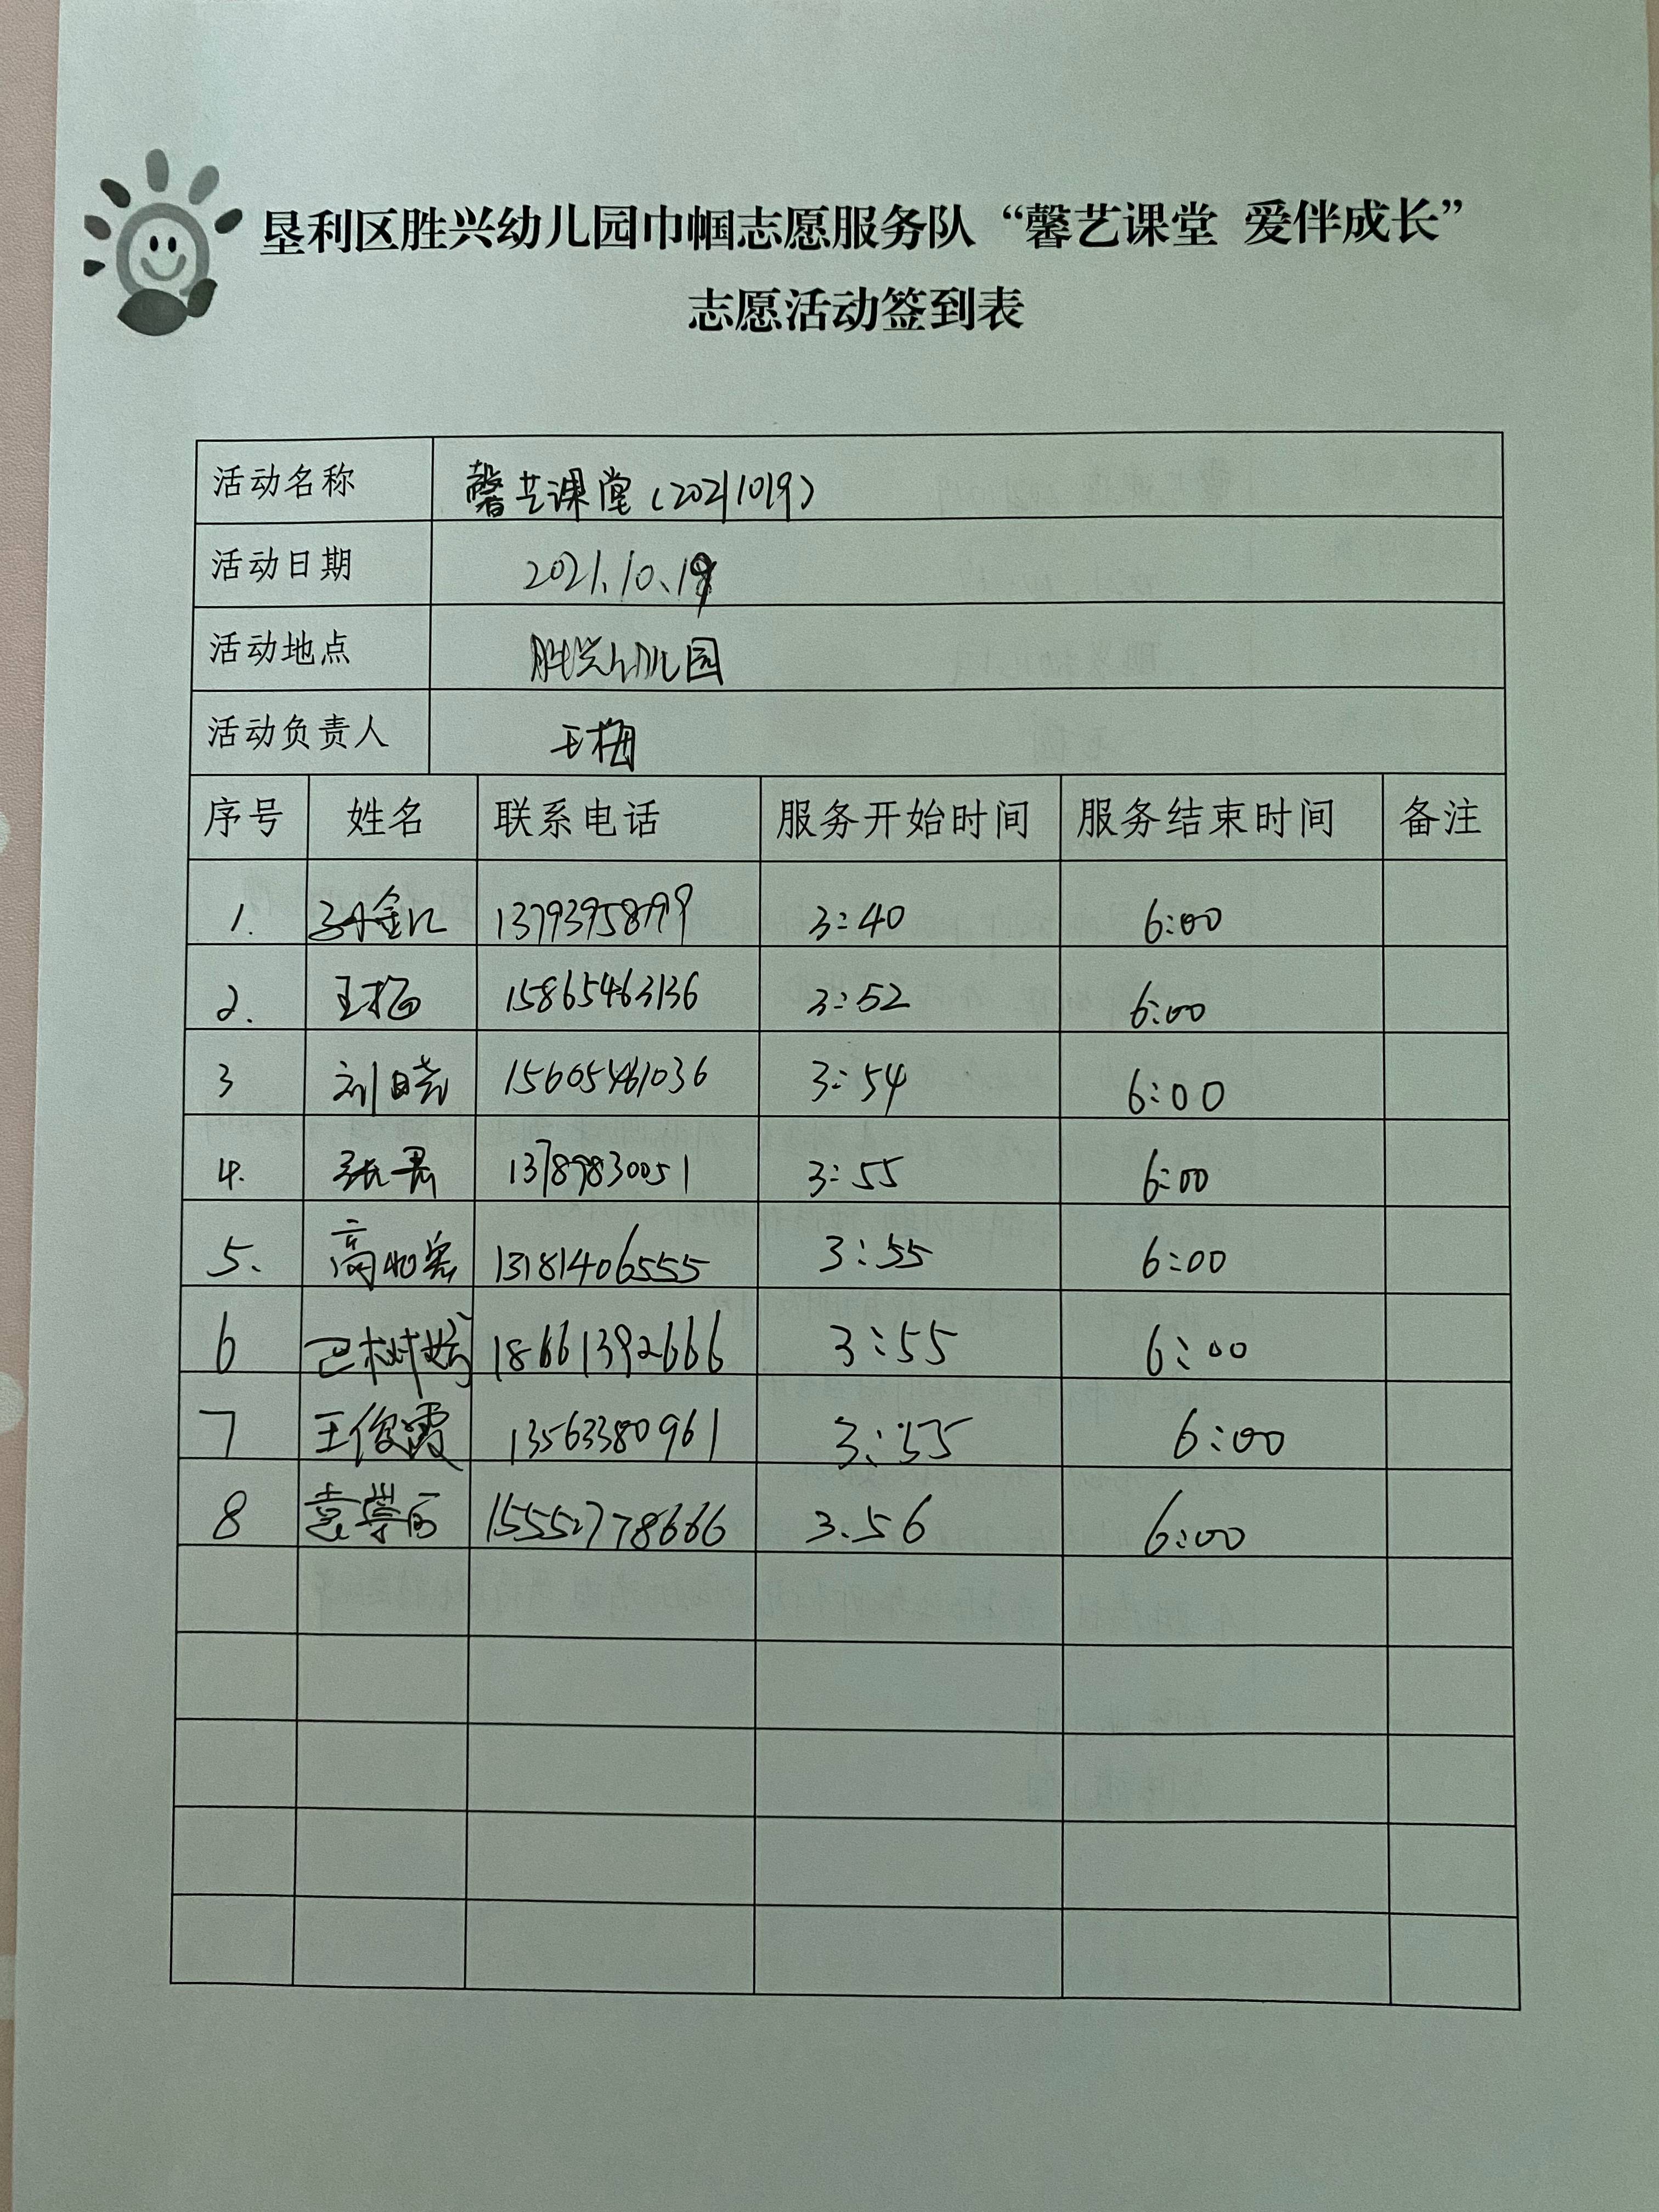 垦利区胜兴幼儿园巾帼志愿服务队“馨艺课堂 爱伴成长”
志愿活动签到表
活动名称 馨艺课堂（20211019）
活动日期 2021.10.19
活动地点 胜兴幼儿园
活动负责人 王梅
序号 姓名 联系电话 服务开始时间 服务结束时间 备注
1. 3:40 6:00
2. 王梅 15865463136 3:52 6:00
3 刘晓 15605461036 3:54 6:00
4. 13789830051 3:55 6:00
5. 高 13181406555 3:55 6:00
6 巴树 18661392666 3:55 6:00
7 王俊霞 13563380961 3:55 6:00
8 袁学丽 15552778666 3.56 6:00